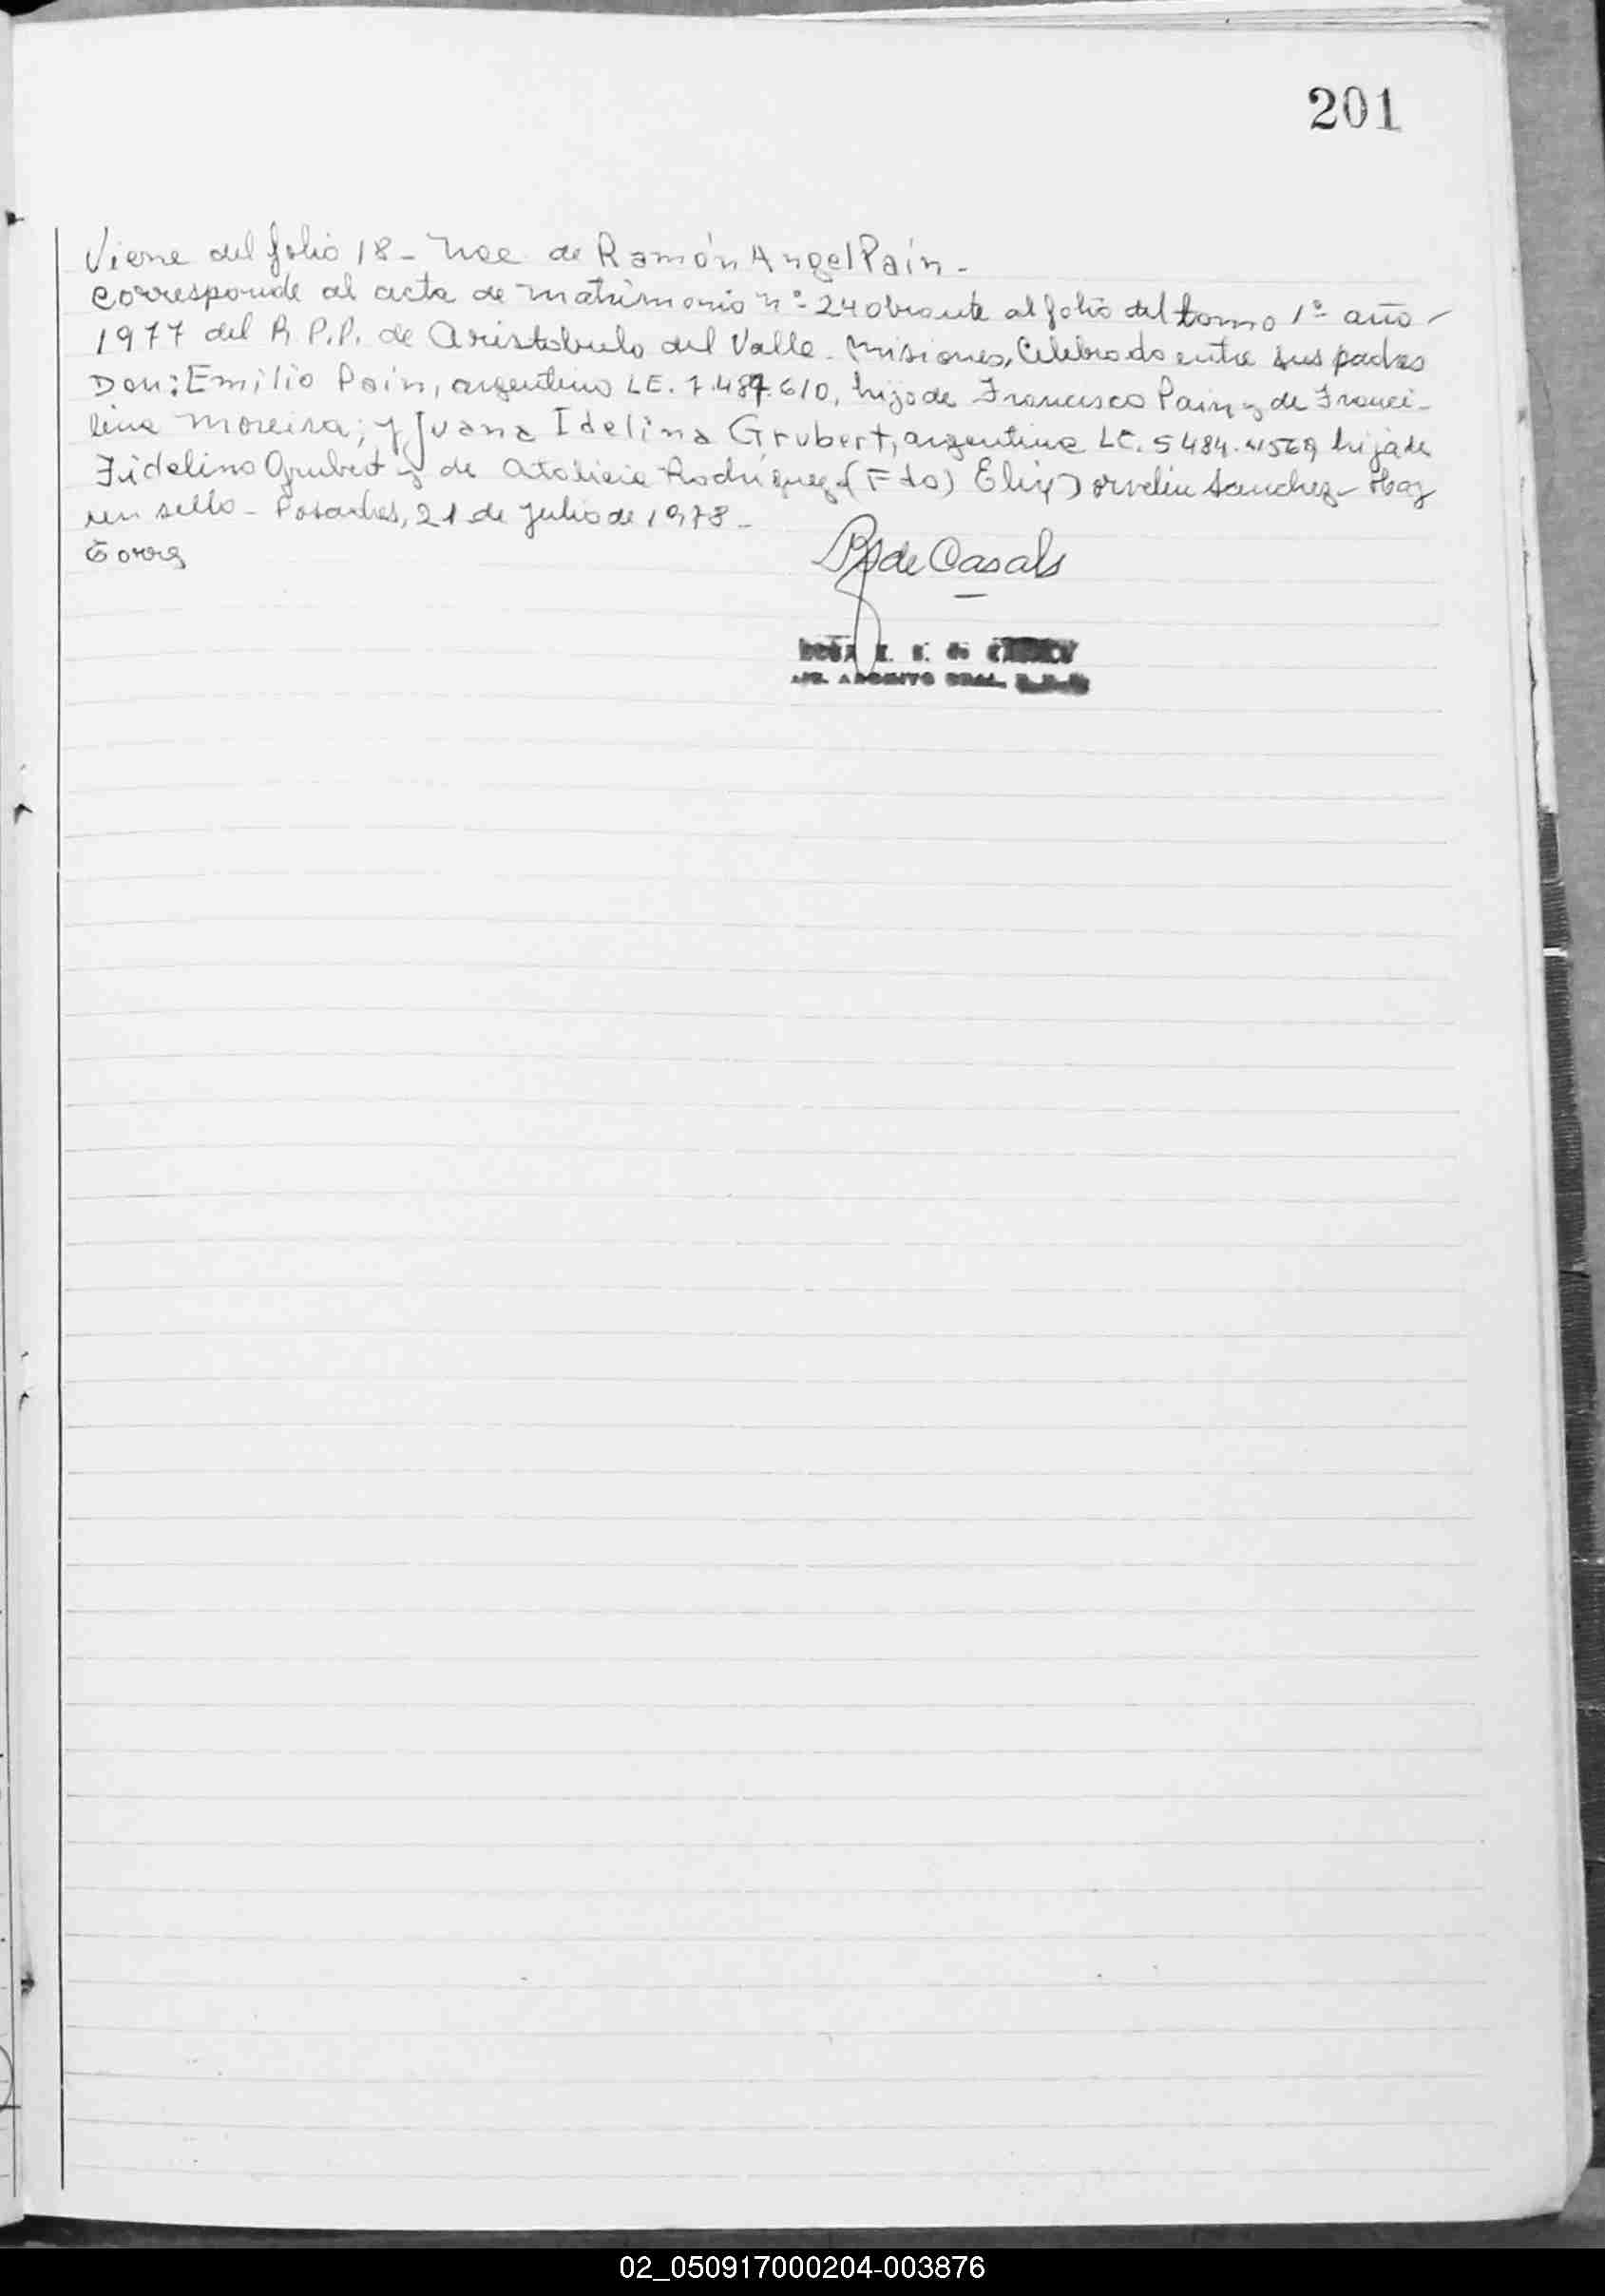 201
Viene del folio 18 - Nac. de Ramón Angel Paín -
Corresponde al acta de matrimonio nº 24 obrante al folio del tomo 1º año
1977 del R.P.P. de Aristobulo del Valle. Misiones, Celebrado entre sus padres
Don: Emilio Pain, argentino LE. 7.487.610, hijo de Francisco Pain y de Franci-
lina Moreira; y Juana Idelina Grubert, argentina LC. 5484.569, hija de
Fidelino Grubert y de Rodriguez (Fdo) Sanchez - Hay
un sello - Posadas, 21 de Julio de 1978 -
de Casals
02_050917000204-003876